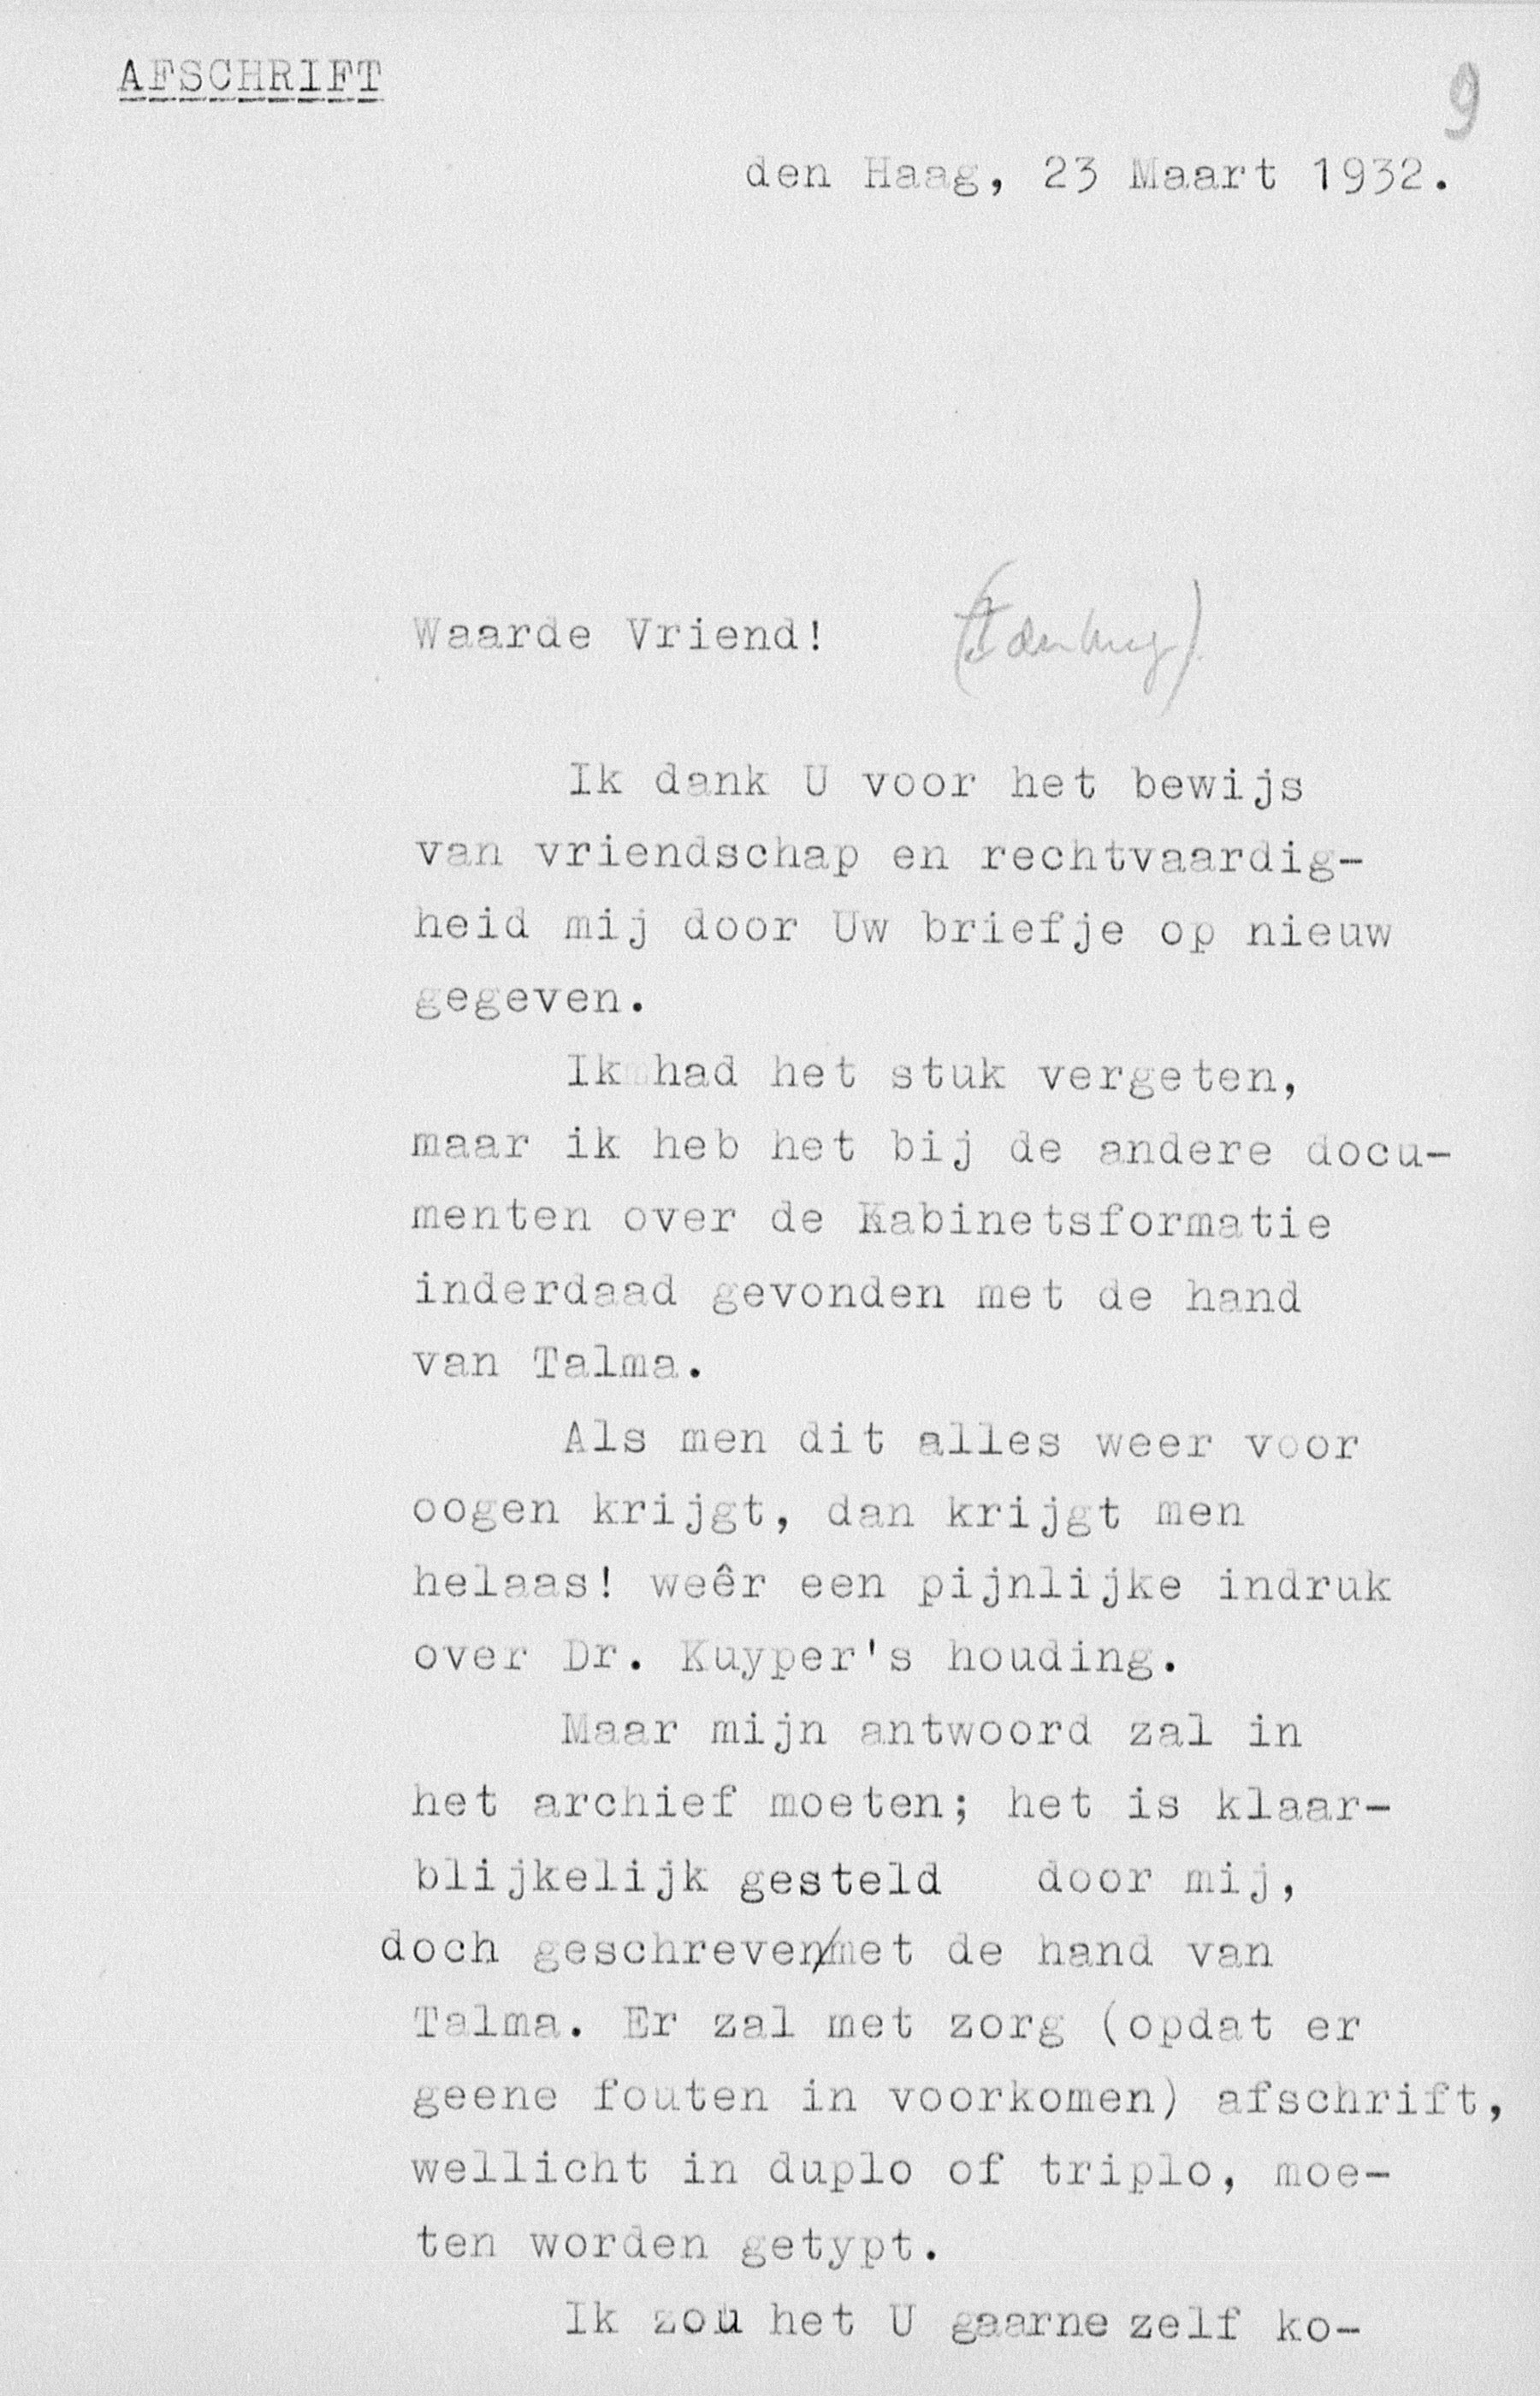 AFSCHRIFT
9
den Haag, 23 Maart 1932.
Waarde Vriend! (Idenburg)
Ik dank U voor het bewijs
van vriendschap en rechtvaardig-
heid mij door Uw briefje op nieuw
gegeven.
Ik had het stuk vergeten,
maar ik heb het bij de andere docu-
menten over de Kabinetsformatie
inderdaad gevonden met de hand
van Talma.
Als men dit alles weer voor
oogen krijgt, dan krijgt men
helaas! weêr een pijnlijke indruk
over Dr. Kuyper's houding.
Maar mijn antwoord zal in
het archief moeten; het is klaar-
blijkelijk gesteld door mij,
doch geschreven/met de hand van
Talma. Er zal met zorg (opdat er
geene fouten in voorkomen) afschrift,
wellicht in duplo of triplo, moe-
ten worden getypt.
Ik zou het U gaarne zelf ko-